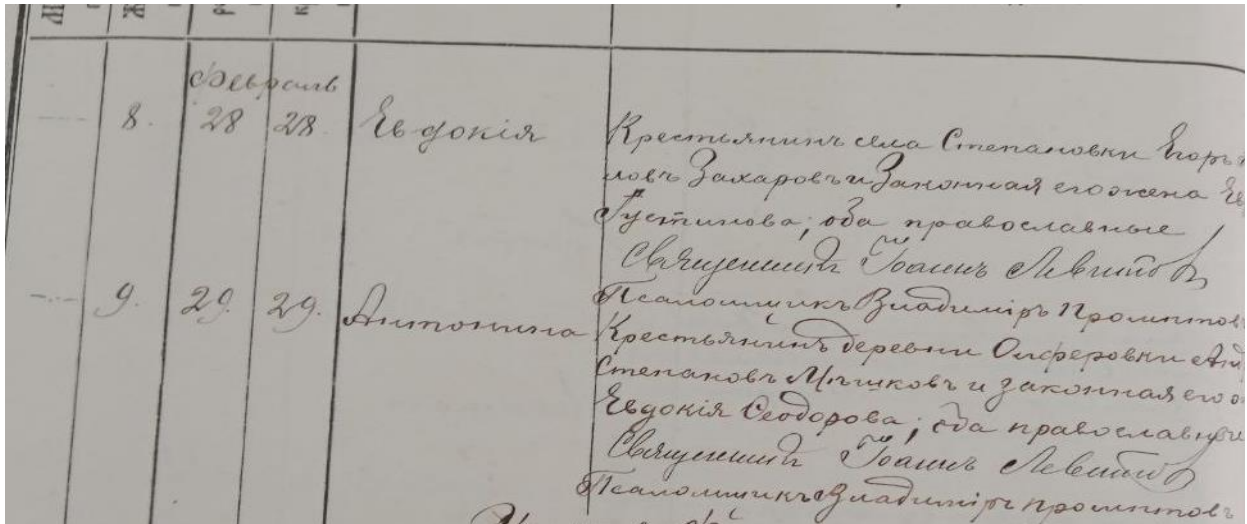 Февраль
8. 28 28 Евдокія
Крестьянинъ села Степановки Егоръ
ловъ Захаровъ и Законная его жена Ев
Густинова; оба православные
Священникъ Іоаннъ Левитов
9. 29. 29. Антонина
Псаломщикъ Владиміръ Промптов
Крестьянинъ деревни Олферовки Анд
Степановъ Мѣшковъ и законная его
Евдокія Ѳеодорова; оба православные
Священникъ Іоаннъ Левитов
Псаломщикъ Владиміръ Промптовъ